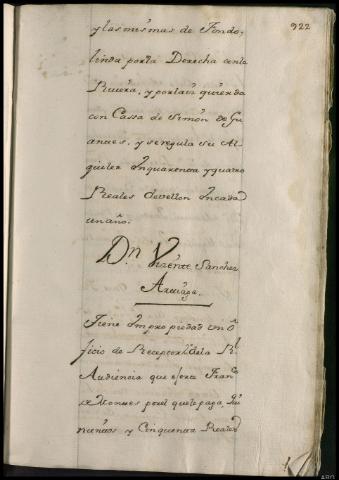 922
y las mismas de Fondo,
linda por la Derecha con la
Rivera, y por la izquierda
con Cassa de Simon de
y se regula su Al,
quiler en quarenta y quatro
Reales de vellon en cada
un año.
Dn. Vizente Sanchez
Arziaga.
Tiene en propiedad un o,
ficio de Receptor de la Rl.
Audiencia que exerze Franco.
por el que le paga,
y Cinquenta Reales